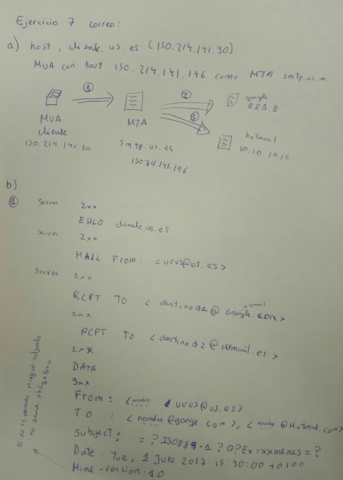 Ejercicio 7 correo:
a) host, cliente.us.es (150.214.141.30)
MUA con host 150.214.141.196 como MTA smtp.us.es
① ②
google
8.8.8.8
②
hotmail
10.10.10.10
MUA
cliente
150.214.141.30
MTA
smtp.us.es
150.214.141.196
b)
① Server 2xx
EHLO cliente.us.es
Server 2xx
MAIL From: <uvus@us.es>
Server 2xx
RCPT TO <destino01@google.com>
2xx
RCPT TO <destino02@hotmail.es>
2xx
DATA
3xx
From: <uvus@us.es>
TO : <nombre@google.com>, @hotmail.com>
Subject: =?ISO8859-1?Q?
Date: Tue, 1 JUN 2017 15:30:00 +0100
Mime-version: 1.0
si no se manda ningun adjunto
no seria obligatorio